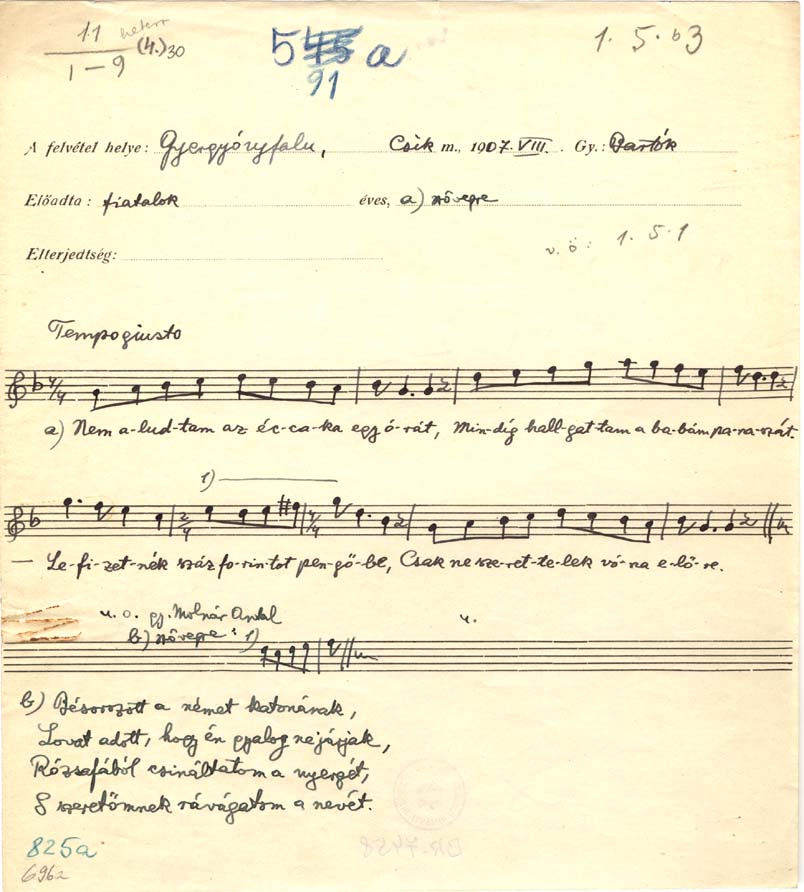 11
1-9 (4.)30
5 a
91
1. 5. b3
A felvétel helye: Gyergyóújfalu, Csik m., 1907. VIII. Gy.: Bartók
Előadta: fiatalok éves, a) szövegre
v. ö: 1. 5. 1
Elterjedtség:
Tempo giusto
a) Nem a-lud-tam az éc-ca-ka egy ó-rát, Min-dig hall-gat-tam a ba-bám pa-na-szát.
1)
Le-fi-zet-nék száz fo-rin-tot pen-gő-be, Csak ne sze-ret-te-lek vó-na e-lő-re.
u. o. gy. Molnár Antal
b) szövegre: 1)
b) Bésorozott a német katonának,
Lovat adott, hogy én gyalog ne járjak,
Rózsafából csináltatom a nyergét,
S szeretőmnek rávágatom a nevét.
825a